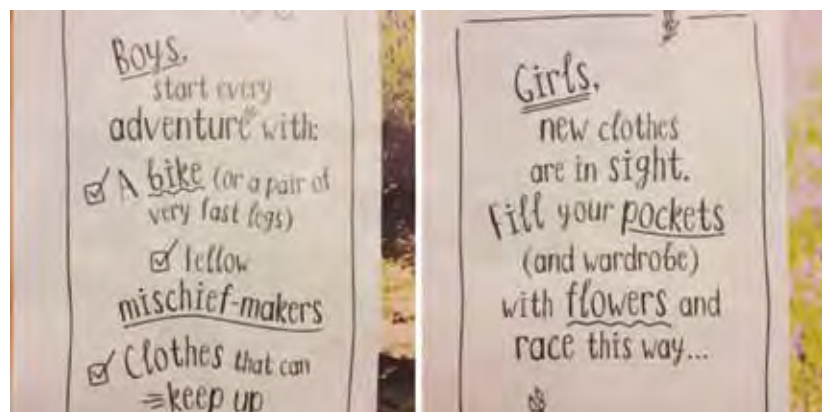 Boys,
start every
adventure with:
A bike (or a pair of
very fast legs)
fellow
mischief-makers
Clothes that can
keep up
Girls,
new clothes
are in sight.
Fill your pockets
(and wardrobe)
with flowers and
race this way...